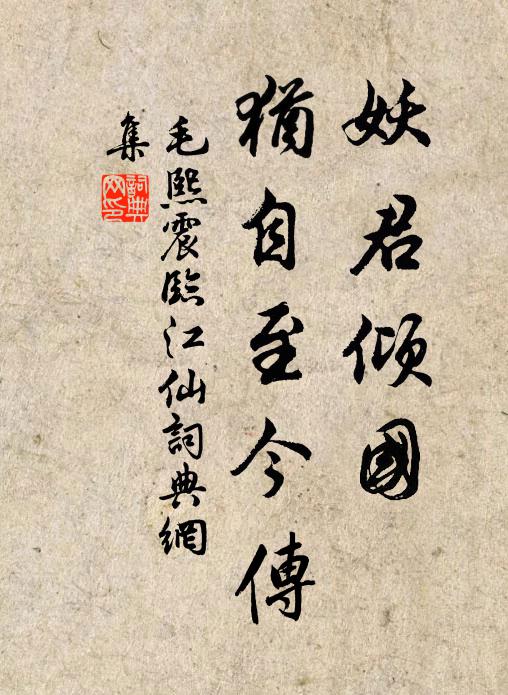 妖君傾國
猶自至今傳
毛熙震臨江仙詞典網
集
詞典
网印